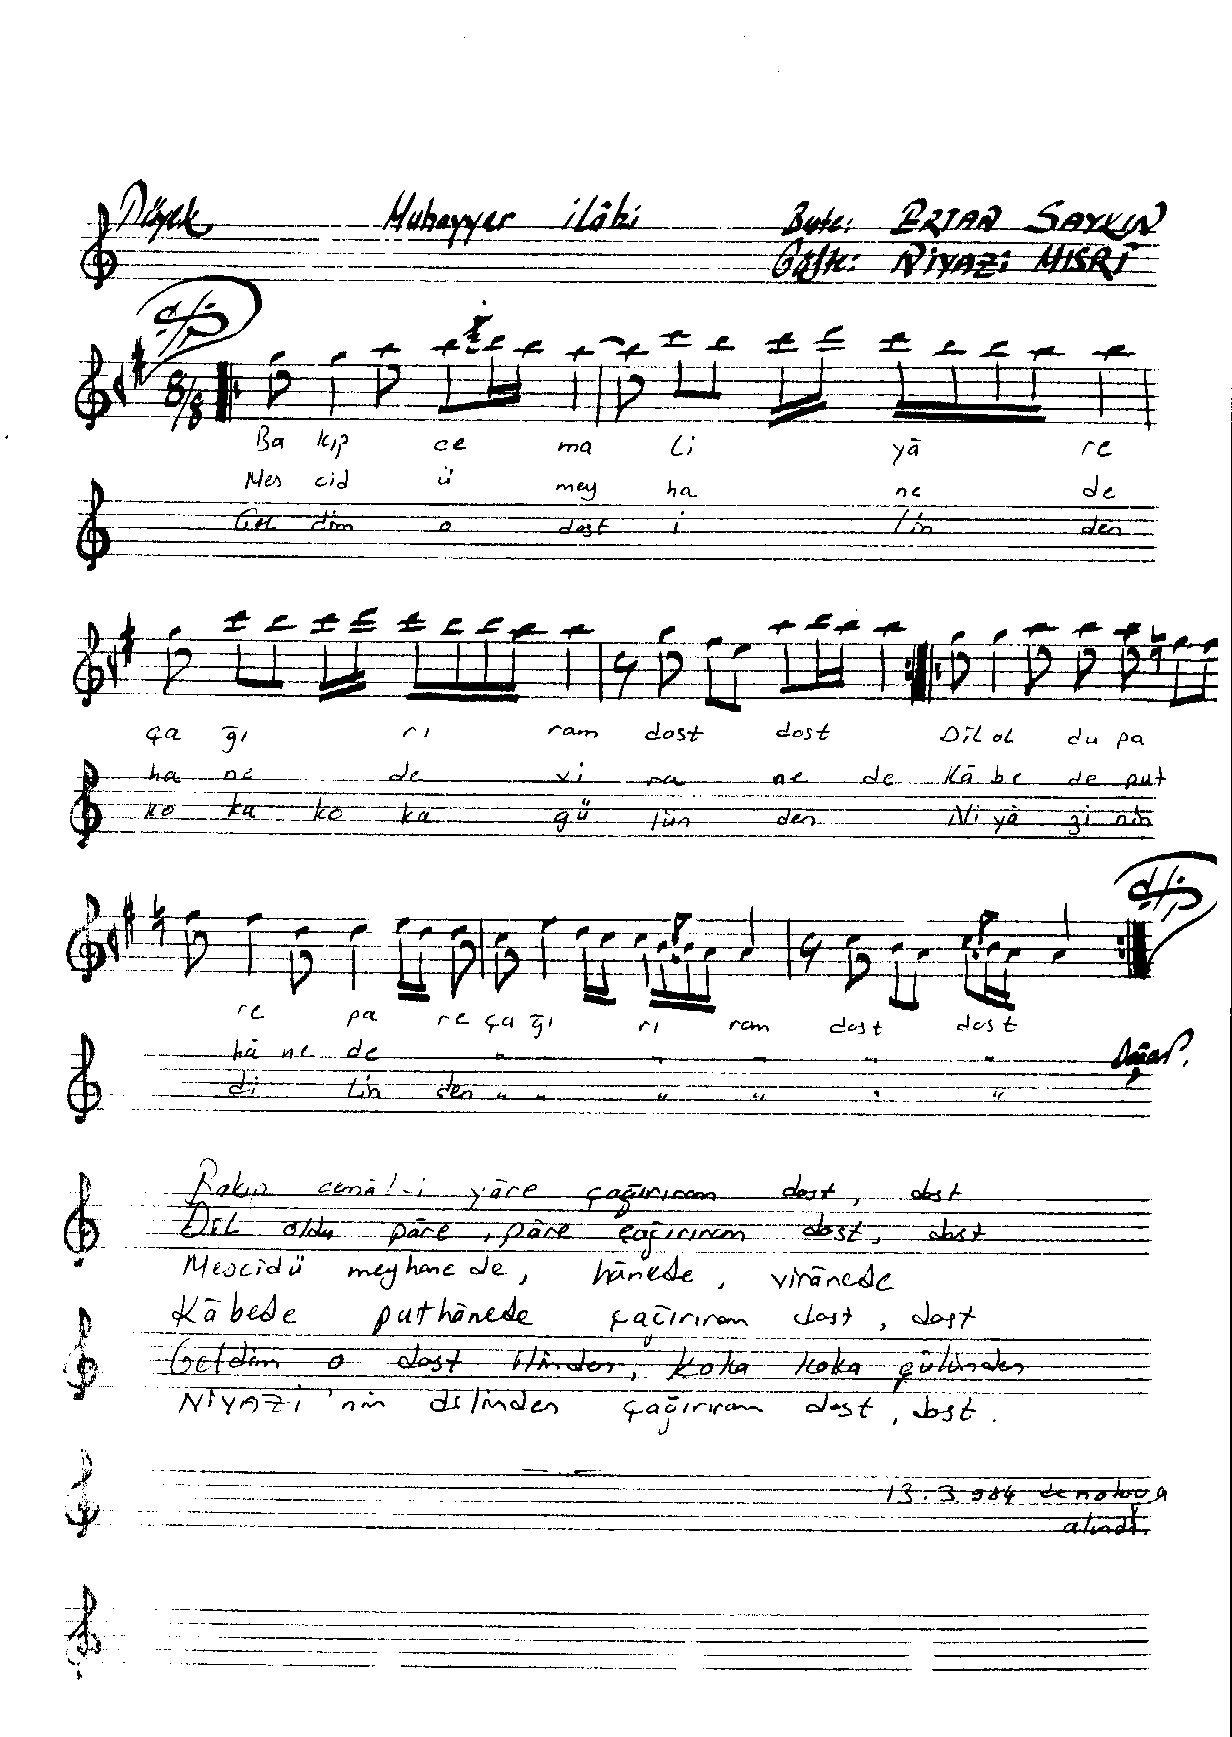 Düyek Muhayyer ilâhi Beste: ERTAN SAYKIN
Güfte: NİYAZİ MISRİ
8/8
Ba kıp ce ma li yâ re
Mes cid ü mey ha ne de
Gel dim o dost i lin den
ça ğı rı ram dost dost Dil ol du pa
ha ne de vi ra ne de Kâ be de put
ko ka ko ka gü lün den Ni yâ zi nin
re pa re ça ğı rı ram dost dost
hâ ne de " " " " "
di lin den " " " " " "
Bakıp cemâl-i yâre çağırıram dost, dost
Dil oldu pâre, pâre çağırıram dost, dost
Mescidü meyhanede, hânede, virânede
Kâbede puthânede çağırıram dost, dost
Geldim o dost ilinden, koka koka gülünden
NİYAZİ'nin dilinden çağırıram dost, dost.
13.3.984 de notaya
alındı.